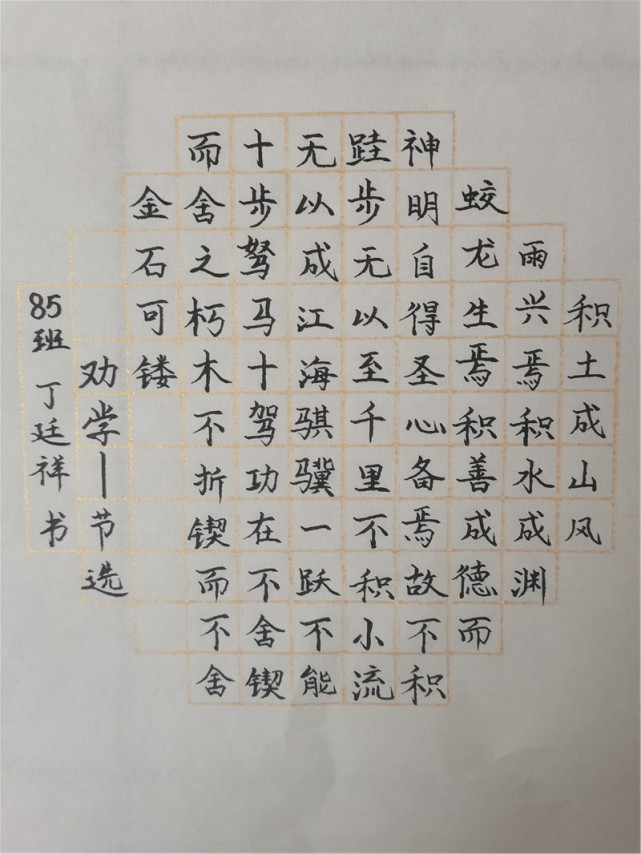 积土成山风
雨兴焉积水成渊
蛟龙生焉积善成德而
神明自得圣心备焉故不积
跬步无以至千里不积小流
无以成江海骐骥一跃不能
十步驽马十驾功在不舍锲
而舍之朽木不折锲而不舍
金石可镂
劝学—节选
85班丁廷祥书